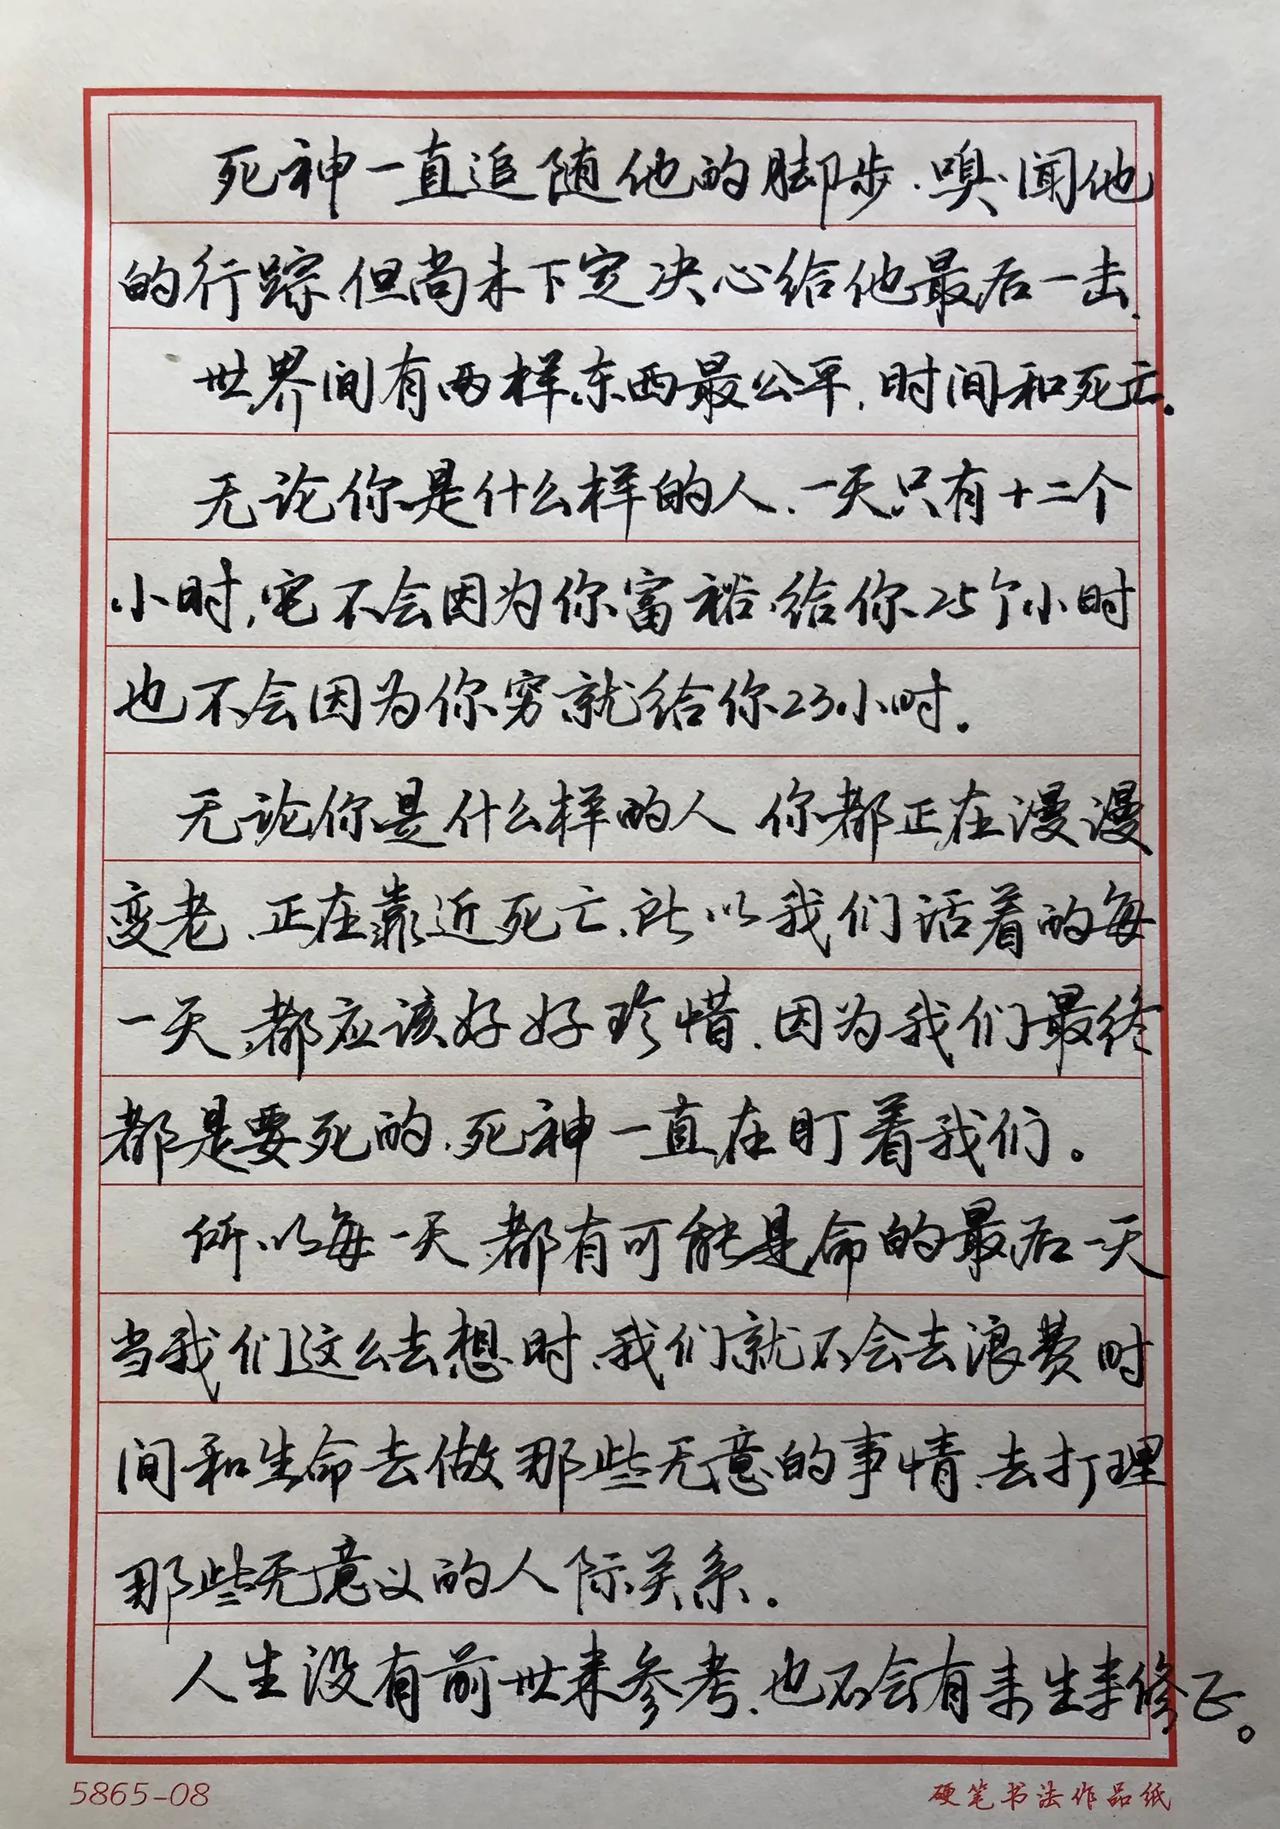 死神一直追随他的脚步、嗅闻他
的行踪、但尚未下定决心给他最后一击.
世界间有两样东西最公平,时间和死亡。
无论你是什么样的人、一天只有十二个
小时,它不会因为你富裕、给你25个小时
也不会因为你穷就给你23小时。
无论你是什么样的人 你都正在漫漫
变老、正在靠近死亡、所以我们活着的每
一天、都应该好好珍惜、因为我们最终
都是要死的、死神一直在盯着我们。
所以每一天、都有可能是命的最后一天
当我们这么去想时、我们就不会去浪费时
间和生命去做那些无意的事情、去打理
那些无意义的人际关系。
人生没有前世来参考、也不会有来生来修正。
5865-08
硬笔书法作品纸